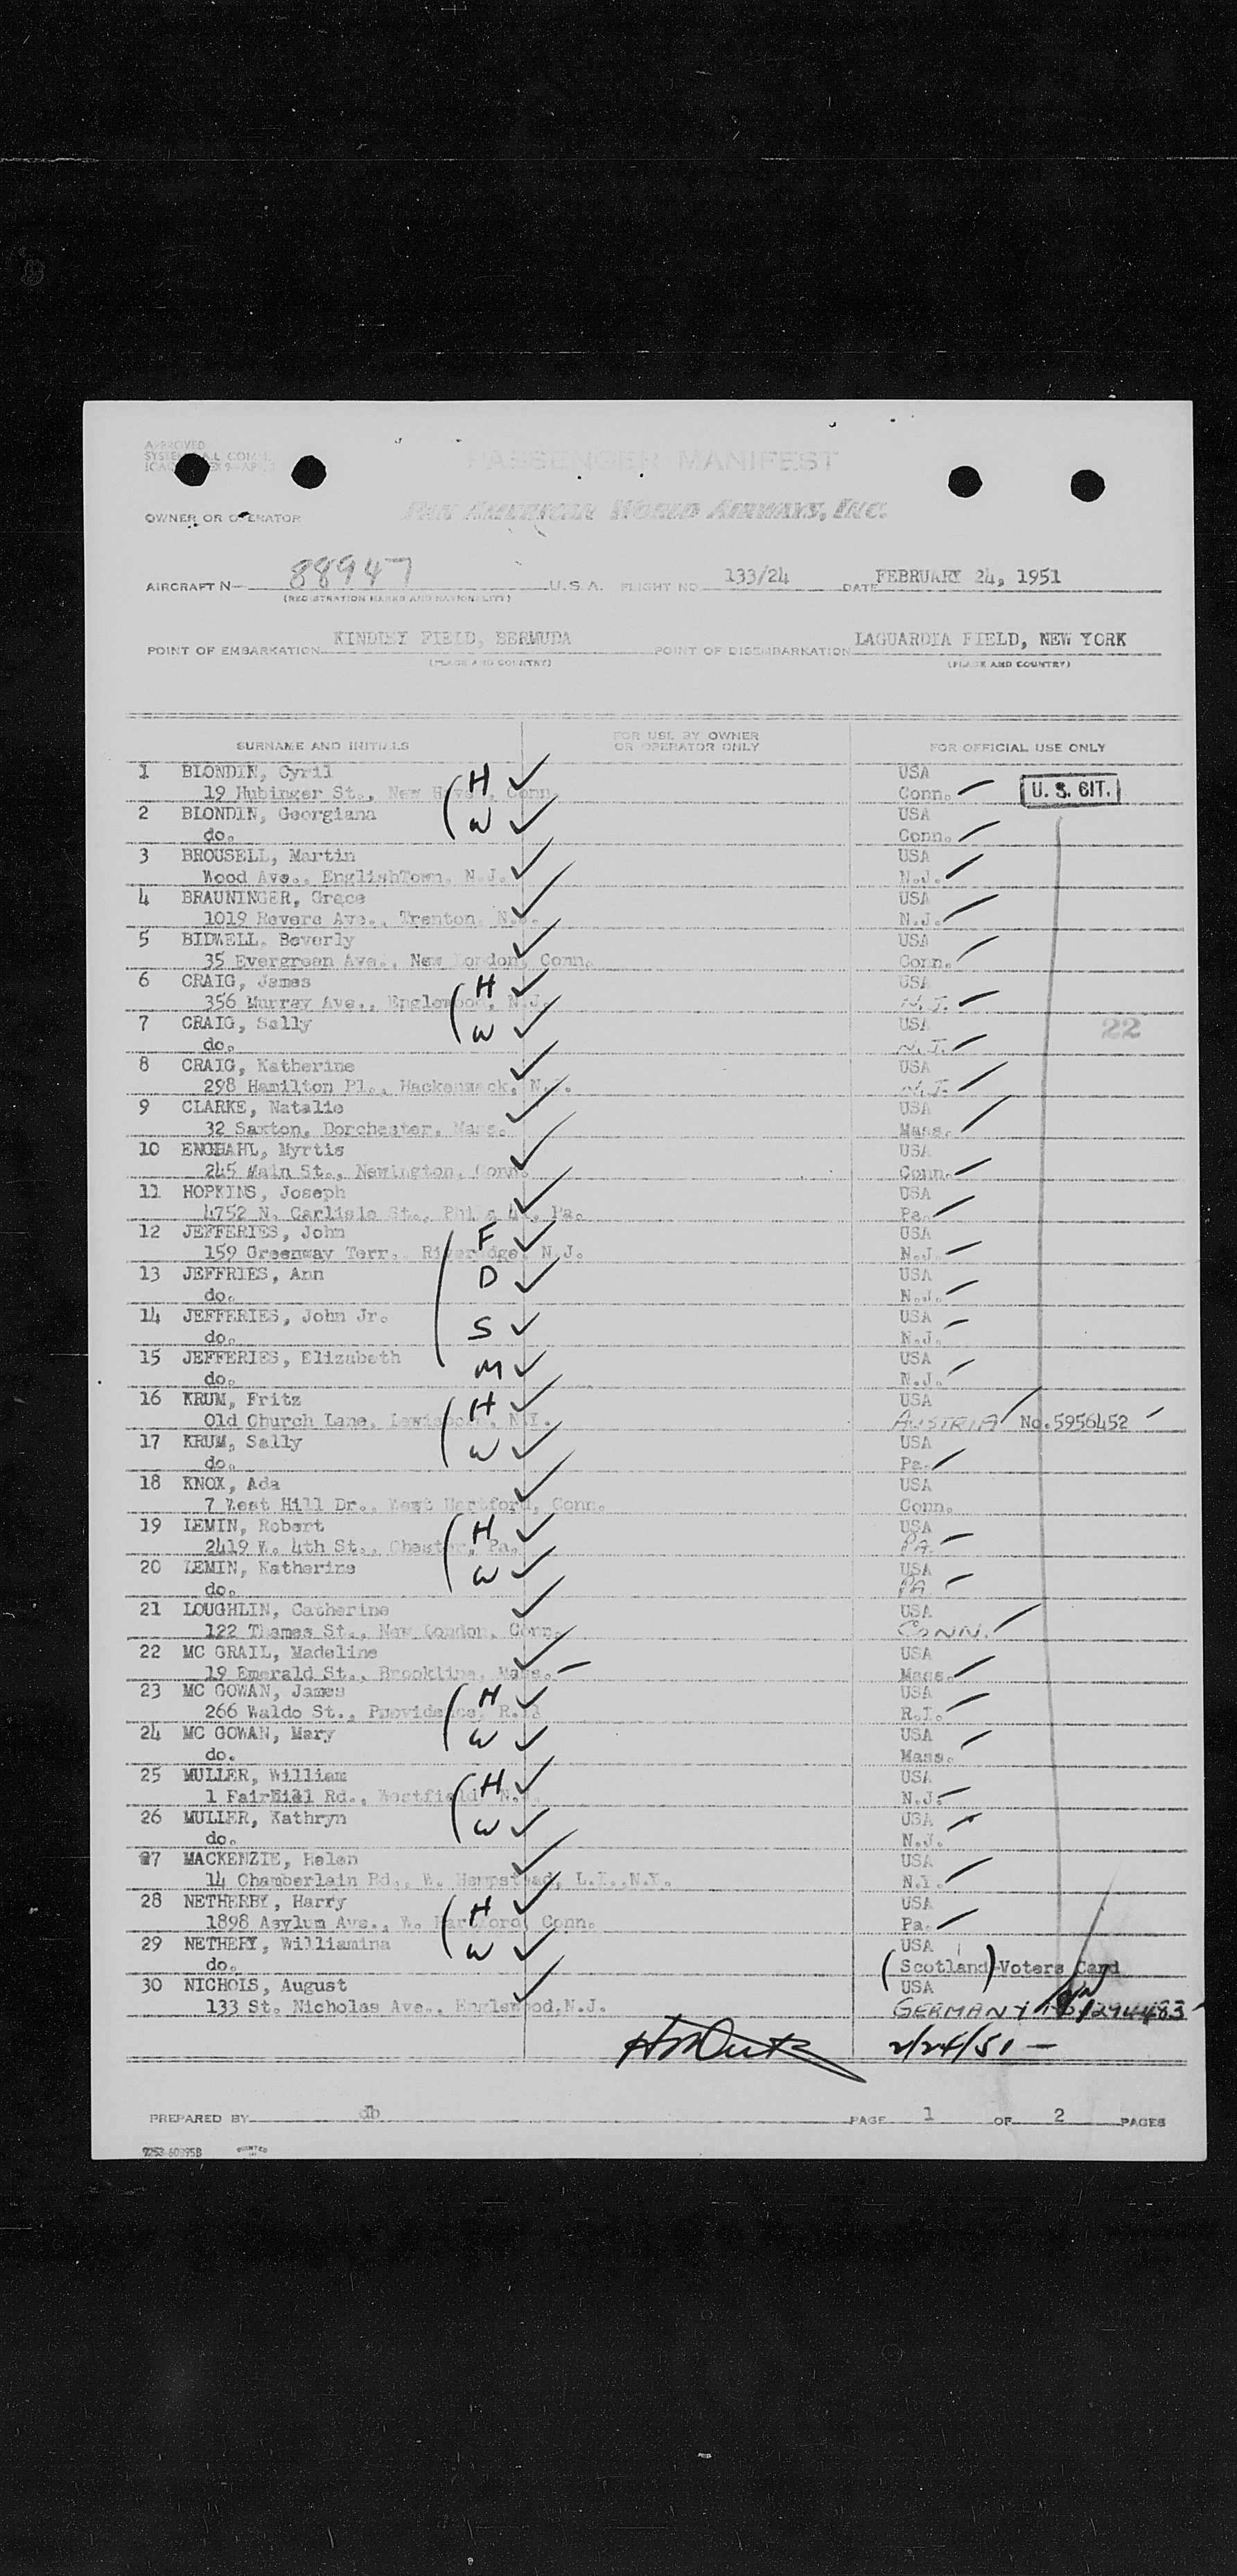 APPROVED
PASSENGER MANIFEST
OWNER OR OPERATOR PAN AMERICAN WORLD AIRWAYS, INC.
AIRCRAFT N— 88947 U.S.A. FLIGHT NO. 133/24 DATE FEBRUARY 24, 1951
(REGISTRATION MARKS AND NATIONALITY)
POINT OF EMBARKATION KINDLEY FIELD, BERMUDA POINT OF DISEMBARKATION LAGUARDIA FIELD, NEW YORK
(PLACE AND COUNTRY) (PLACE AND COUNTRY)
SURNAME AND INITIALS FOR USE BY OWNER OR OPERATOR ONLY FOR OFFICIAL USE ONLY
1 BLONDIN, Cyril H USA
19 Hubinger St., New Haven, Conn. Conn. U. S. CIT.
2 BLONDIN, Georgiana W USA
do. Conn.
3 BROUSELL, Martin USA
Wood Ave., EnglishTown, N.J. N.J.
4 BRAUNINGER, Grace USA
1019 Revere Ave., Trenton, N.J. N.J.
5 BIDWELL, Beverly USA
35 Evergreen Ave., New London, Conn. Conn.
6 CRAIG, James H USA
356 Murray Ave., Englewood, N.J. N.J.
7 CRAIG, Sally W USA 22
do. N.J.
8 CRAIG, Katherine USA
298 Hamilton Pl., Hackensack, N.J. N.J.
9 CLARKE, Natalie USA
32 Saxton, Dorchester, Mass. Mass.
10 ENGDAHL, Myrtis USA
245 Main St., Newington, Conn. Conn.
11 HOPKINS, Joseph USA
4752 N. Carlisle St., Phila 41, Pa. Pa.
12 JEFFERIES, John F USA
159 Greenway Terr., Riveredge, N.J. N.J.
13 JEFFRIES, Ann D USA
do. N.J.
14 JEFFERIES, John Jr. S USA
do. N.J.
15 JEFFERIES, Elizabeth M USA
do. N.J.
16 KRUM, Fritz H USA
Old Church Lane, N.Y. AUSTRIA No.5956452
17 KRUM, Sally W USA
do. Pa.
18 KNOX, Ada USA
7 West Hill Dr., West Hartford, Conn. Conn.
19 LEMIN, Robert H USA
2419 W. 4th St., Chester, Pa. PA.
20 LEMIN, Katherine W USA
do. PA.
21 LOUGHLIN, Catherine USA
122 Thames St., New London, Conn. CONN.
22 MC GRAIL, Madeline USA
19 Emerald St., Brookline, Mass. Mass.
23 MC GOWAN, James H USA
266 Waldo St., Providence, R.I. R.I.
24 MC GOWAN, Mary W USA
do. Mass.
25 MULLER, William H USA
1 Fairhill Rd., Westfield, N.J. N.J.
26 MULLER, Kathryn W USA
do. N.J.
27 MACKENZIE, Helen USA
14 Chamberlain Rd., W. Hempstead, L.I.,N.Y. N.Y.
28 NETHERBY, Harry H USA
1898 Asylum Ave., W. Hartford, Conn. Pa.
29 NETHERY, Williamina W USA
do. (Scotland) Voters Card
30 NICHOLS, August USA
133 St. Nicholas Ave., Englewood,N.J. GERMANY
2/24/51 —
PREPARED BY db PAGE 1 OF 2 PAGES